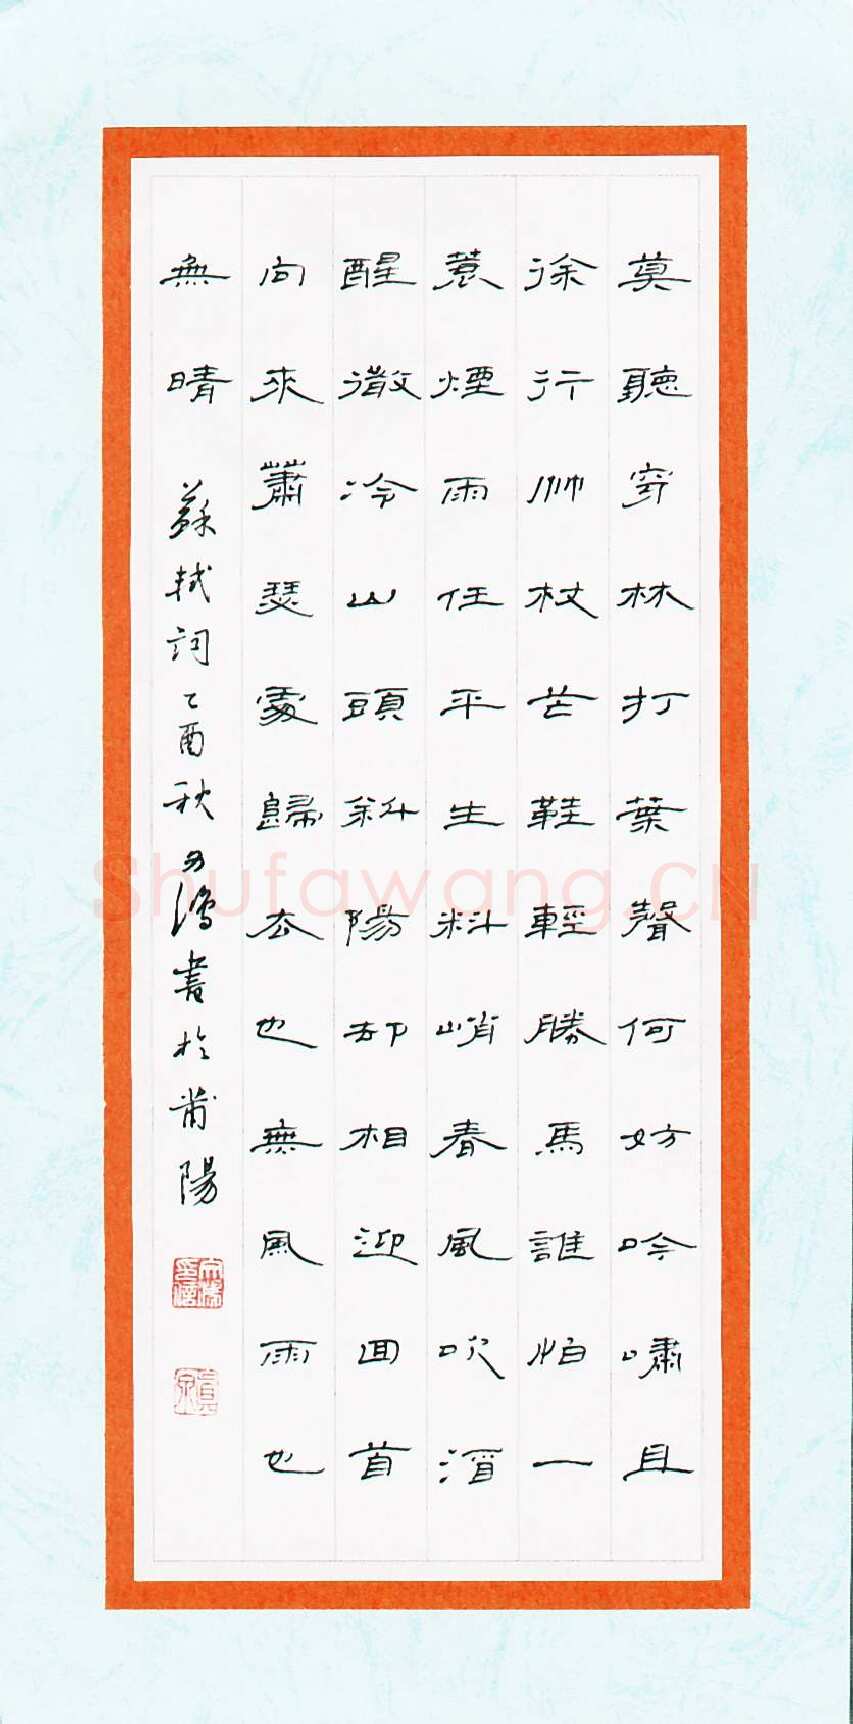 莫聽穿林打葉聲何妨吟嘯且
徐行竹杖芒鞋輕勝馬誰怕一
蓑煙雨任平生料峭春風吹酒
醒微冷山頭斜陽却相迎囬首
向來蕭瑟處歸去也無風雨也
無晴 蘇軾詞乙酉秋 書於莆陽
Shufawang.CN